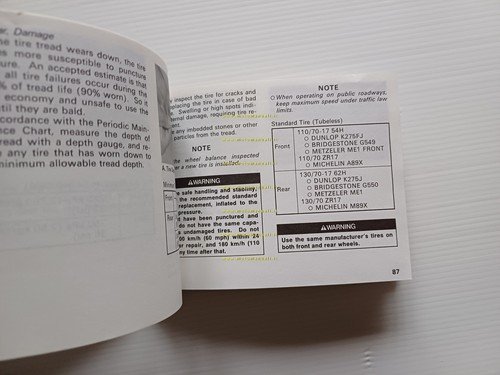 ar, Damage
he tire tread wears down, the
es more susceptible to puncture
ure. An accepted estimate is that
all tire failures occur during the
% of tread life (90% worn). So it
economy and unsafe to use the
til they are bald.
cordance with the Periodic Main-
nce Chart, measure the depth of
read with a depth gauge, and re-
e any tire that has worn down to
minimum allowable tread depth.
y inspect the tire for cracks and
placing the tire in case of bad
e. Swelling or high spots indi-
ernal damage, requiring tire re-
e any imbedded stones or other
particles from the tread.
NOTE
the wheel balance inspected
er a new tire is installed.
⚠WARNING
e safe handling and stability,
the recommended standard
replacement, inflated to the
pressure.
t have been punctured and
do not have the same capa-
s undamaged tires. Do not
00 km/h (60 mph) within 24
er repair, and 180 km/h (110
ny time after that.
NOTE
○ When operating on public roadways,
keep maximum speed under traffic law
limits.
Standard Tire (Tubeless)
Front
110/70-17 54H
○ DUNLOP K275FJ
○ BRIDGESTONE G549
○ METZELER ME1 FRONT
110/70 ZR17
○ MICHELIN A89X
Rear
130/70-17 62H
○ DUNLOP K275J
○ BRIDGESTONE G550
○ METZELER ME1
130/70 ZR17
○ MICHELIN M89X
⚠WARNING
Use the same manufacturer's tires on
both front and rear wheels.
87